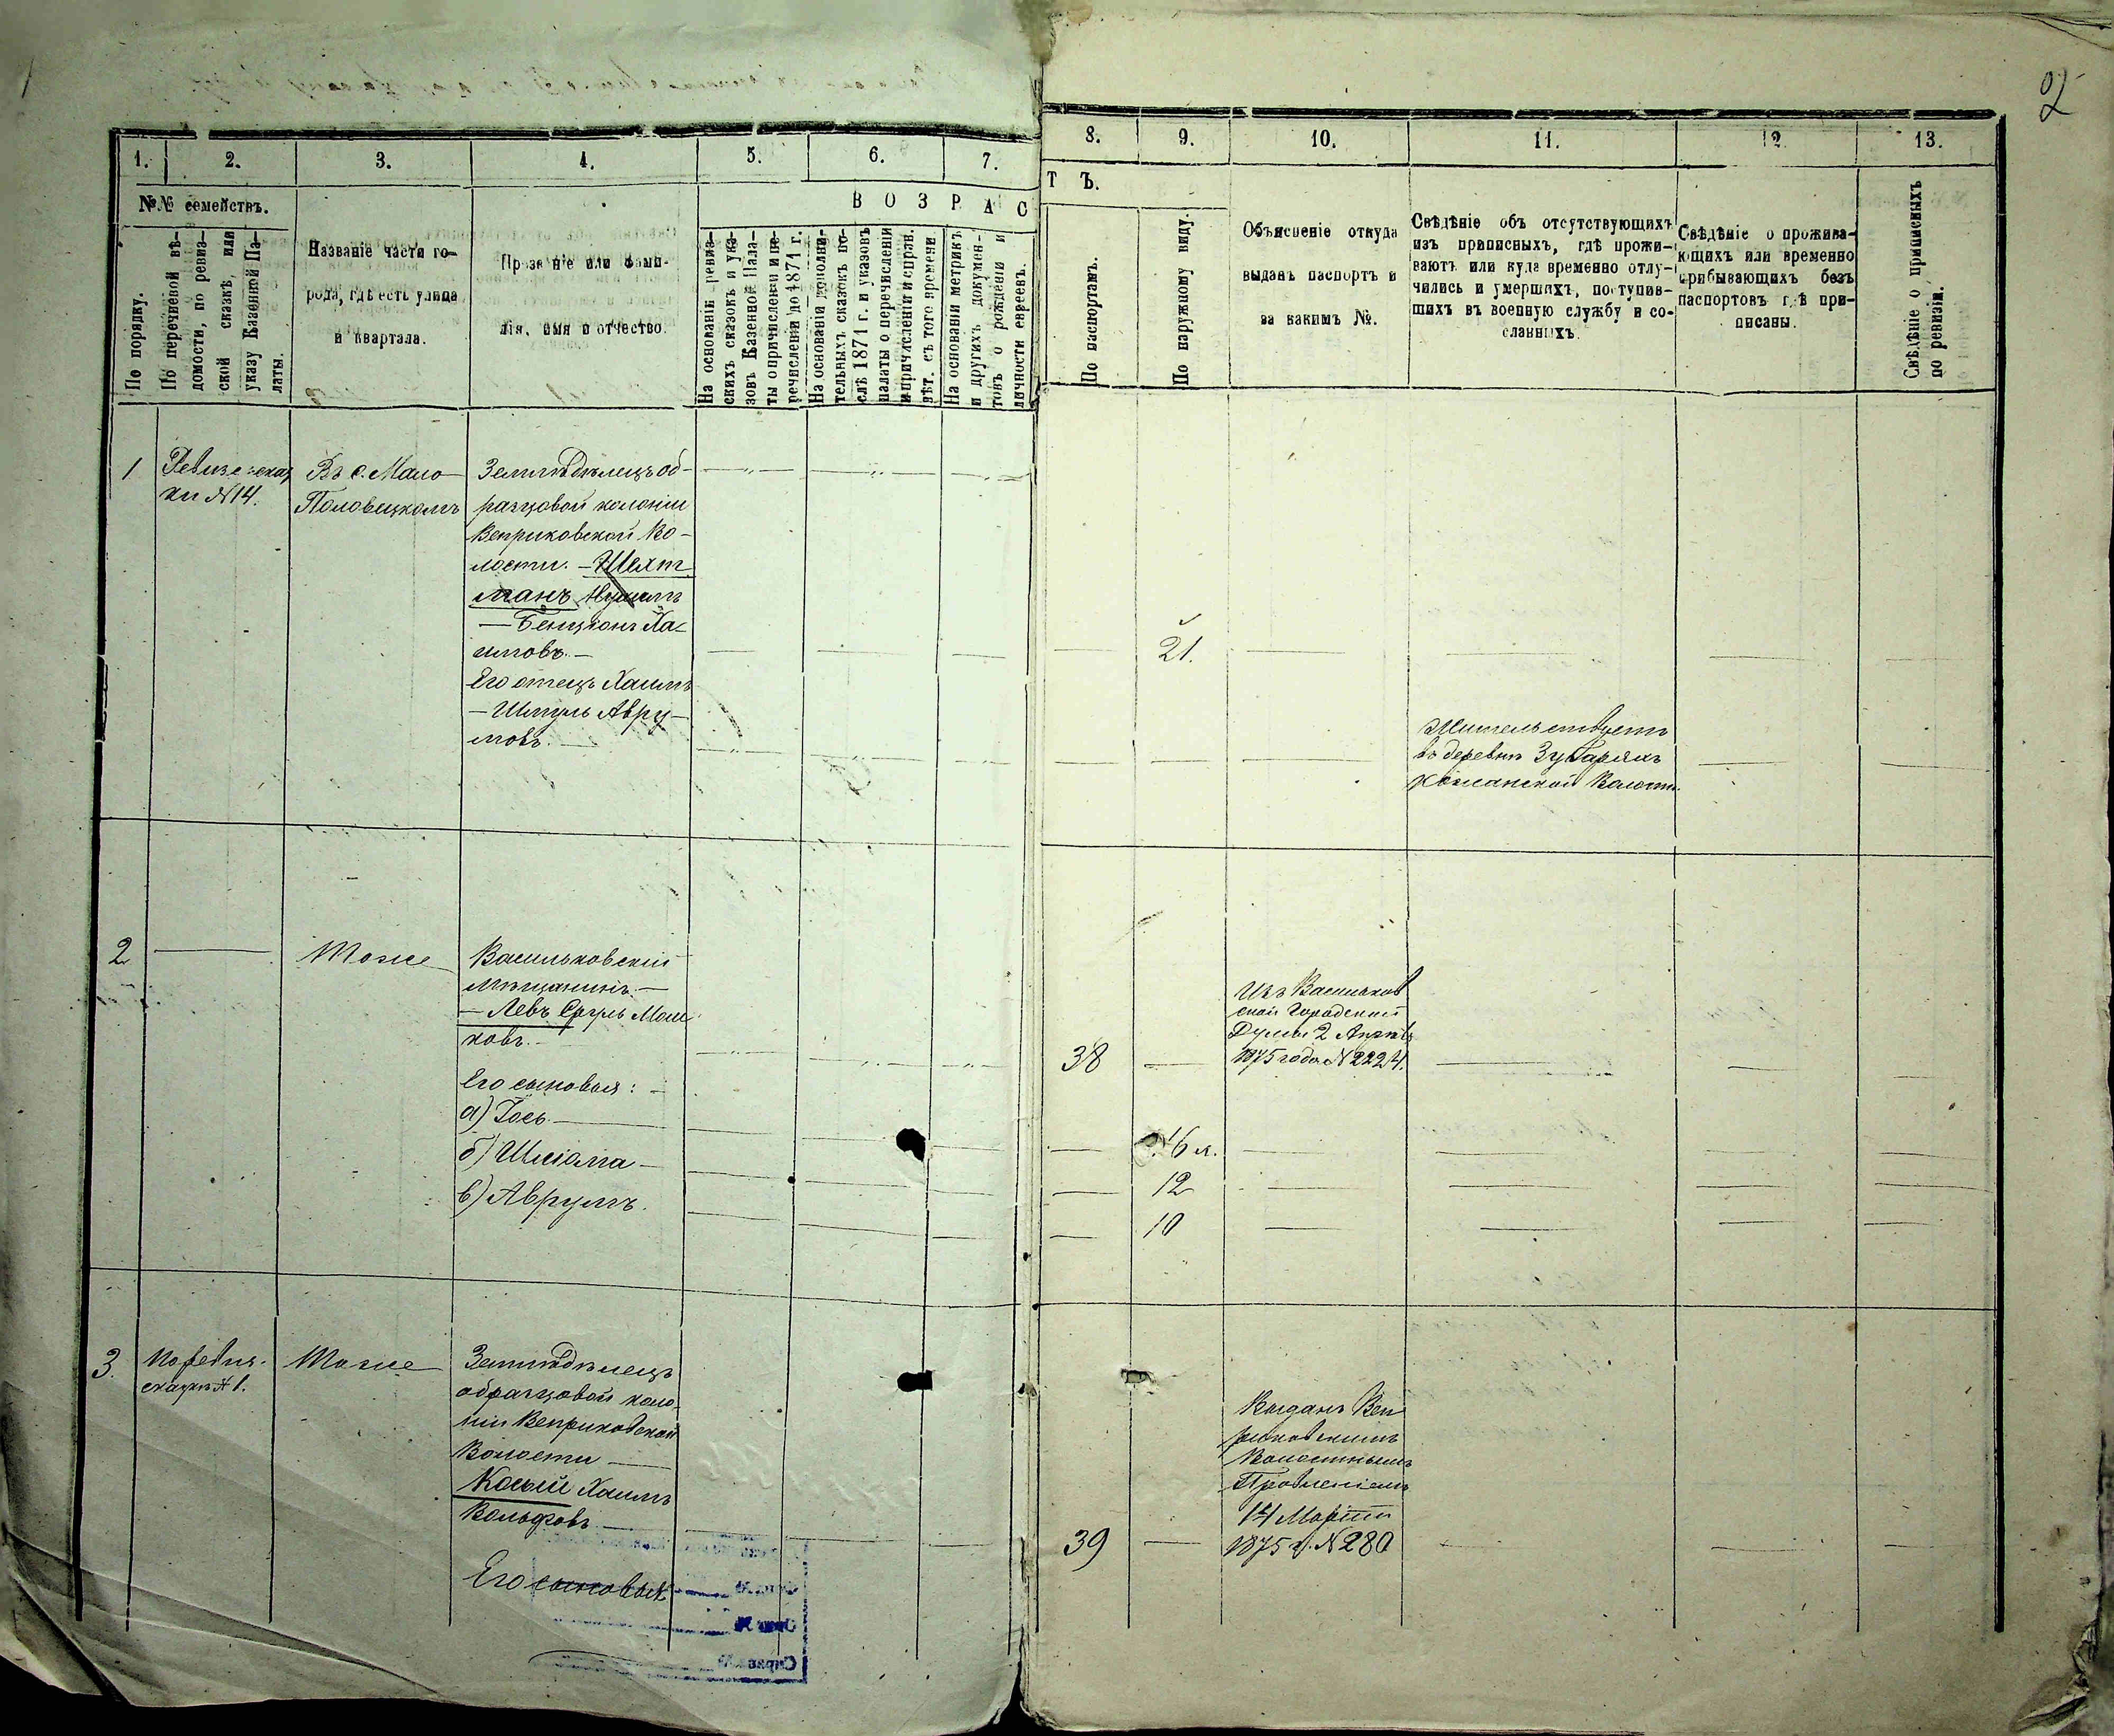 2
1. 2. 3. 4. 5. 6. 7.
8. 9. 10. 11. 12 13.
№№ семействъ.
По порядку.
По перечневой вѣ-
домости, по ревиз-
ской сказкѣ, или
указу Казенной Па-
латы.
Названіе части го-
рода, гдѣ есть улица
и квартала.
Прозваніе или фами-
лія, имя и отчество.
В О З Р А С
Т Ъ.
На основаніи ревиз-
скихъ сказокъ и ука-
зовъ Казенной Пала-
ты о причисленіи и пе-
речисленіи до 1871 г.
На основаніи дополни-
тельныхъ сказокъ по-
слѣ 1871 г. и указовъ
палаты о перечисленіи
и причисленіи и справн.
лѣт. съ того времени
На основаніи метрикъ
и другихъ докумен-
товъ о рожденіи и
личности евреевъ.
По паспортамъ.
По наружному виду.
Объясненіе откуда
выданъ паспортъ и
за какимъ №.
Свѣдѣніе объ отсутствующихъ
изъ приписныхъ, гдѣ прожи-
ваютъ или куда временно отлу-
чились и умершихъ, поступив-
шихъ въ военную службу и со-
сланныхъ.
Свѣдѣніе о прожива-
ющихъ или временно
прибывающихъ безъ
паспортовъ гдѣ при-
писаны.
Свѣдѣніе о приписныхъ
по ревизіи.
1
Ревизс: сказ
ки №14.
Въ с. Мало
Половецкомъ
Земледѣлецъ об-
разцовой колоніи
Веприковской Во-
лости. – Шехт
манъ
– Бенціонъ Ха-
имовъ. –
21.
Его отецъ Хаимъ
– Шмуль Авру-
мовъ. –
Жительствуетъ
въ деревнѣ Зубаряхъ
Кожанской Волости.
2
Тоже
Васильковскій
Мѣщанинъ. –
– Левъ Сруль Мош
ковъ. –
38
Изъ Васильков
ской Городской
Думы 2 Апрѣля
1875 года №2224.
Его сыновья:
а) Іось
16 л.
б) Шліома –
12
в) Аврумъ.
10
3.
По ревиз.
сказкѣ № 1.
Тоже
Земледѣлецъ
образцовой коло-
ніи Веприковской
Волости
Косый Хаимъ
Вольфовъ
39
Выданъ Веп
риковскимъ
Волостнымъ
Правленіемъ
14 Марта
1875 г. №280
Его сыновья